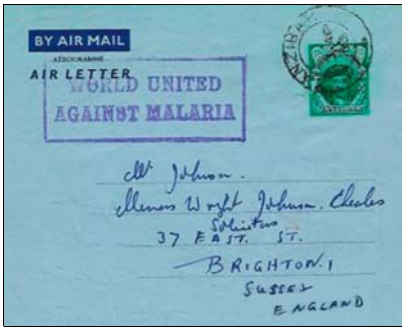 BY AIR MAIL
AÉROGRAMME
AIR LETTER
WORLD UNITED
AGAINST MALARIA
ZANZIBAR
Mr Johnson.
Messrs Wright Johnson.
Solicitors
37 EAST. ST.
BRIGHTON. 1
SUSSEX
ENGLAND